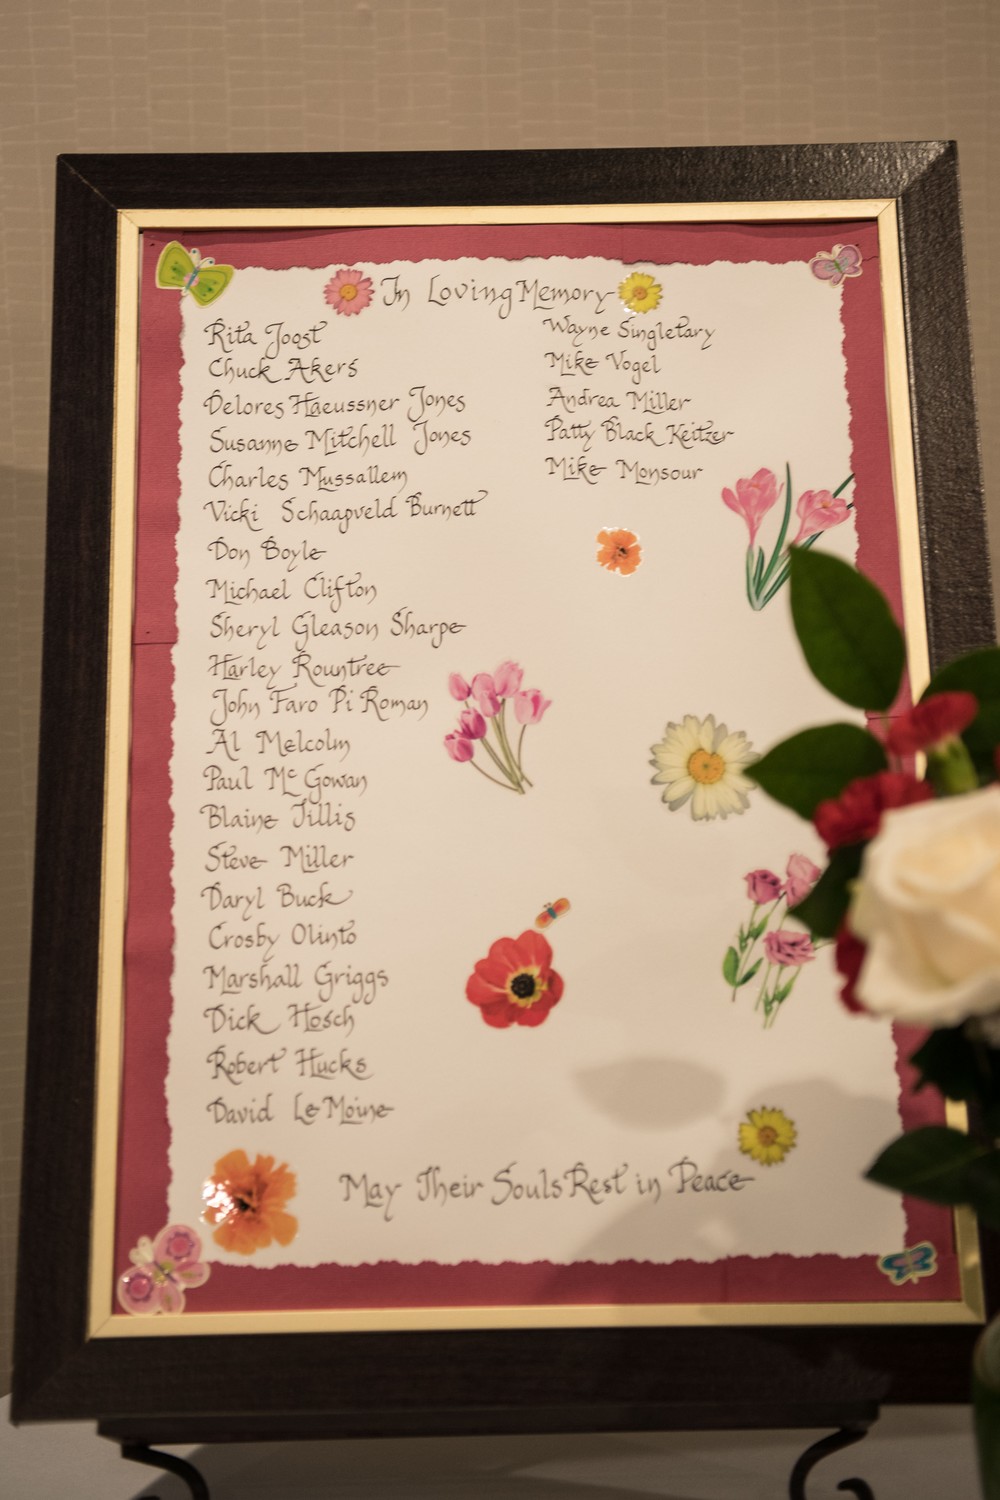 In Loving Memory
Rita Joost
Chuck Akers
Delores Haeussner Jones
Susanne Mitchell Jones
Charles Mussallem
Vicki Schaapveld Burnett
Don Boyle
Michael Clifton
Sheryl Gleason Sharpe
Harley Rountree
John Faro Pi Roman
Al Melcolm
Paul McGowan
Blaine Tillis
Steve Miller
Daryl Buck
Crosby Olinto
Marshall Griggs
Dick Hosch
Robert Hucks
David LeMoine
Wayne Singletary
Mike Vogel
Andrea Miller
Patty Black Keitzer
Mike Monsour
May Their Souls Rest in Peace